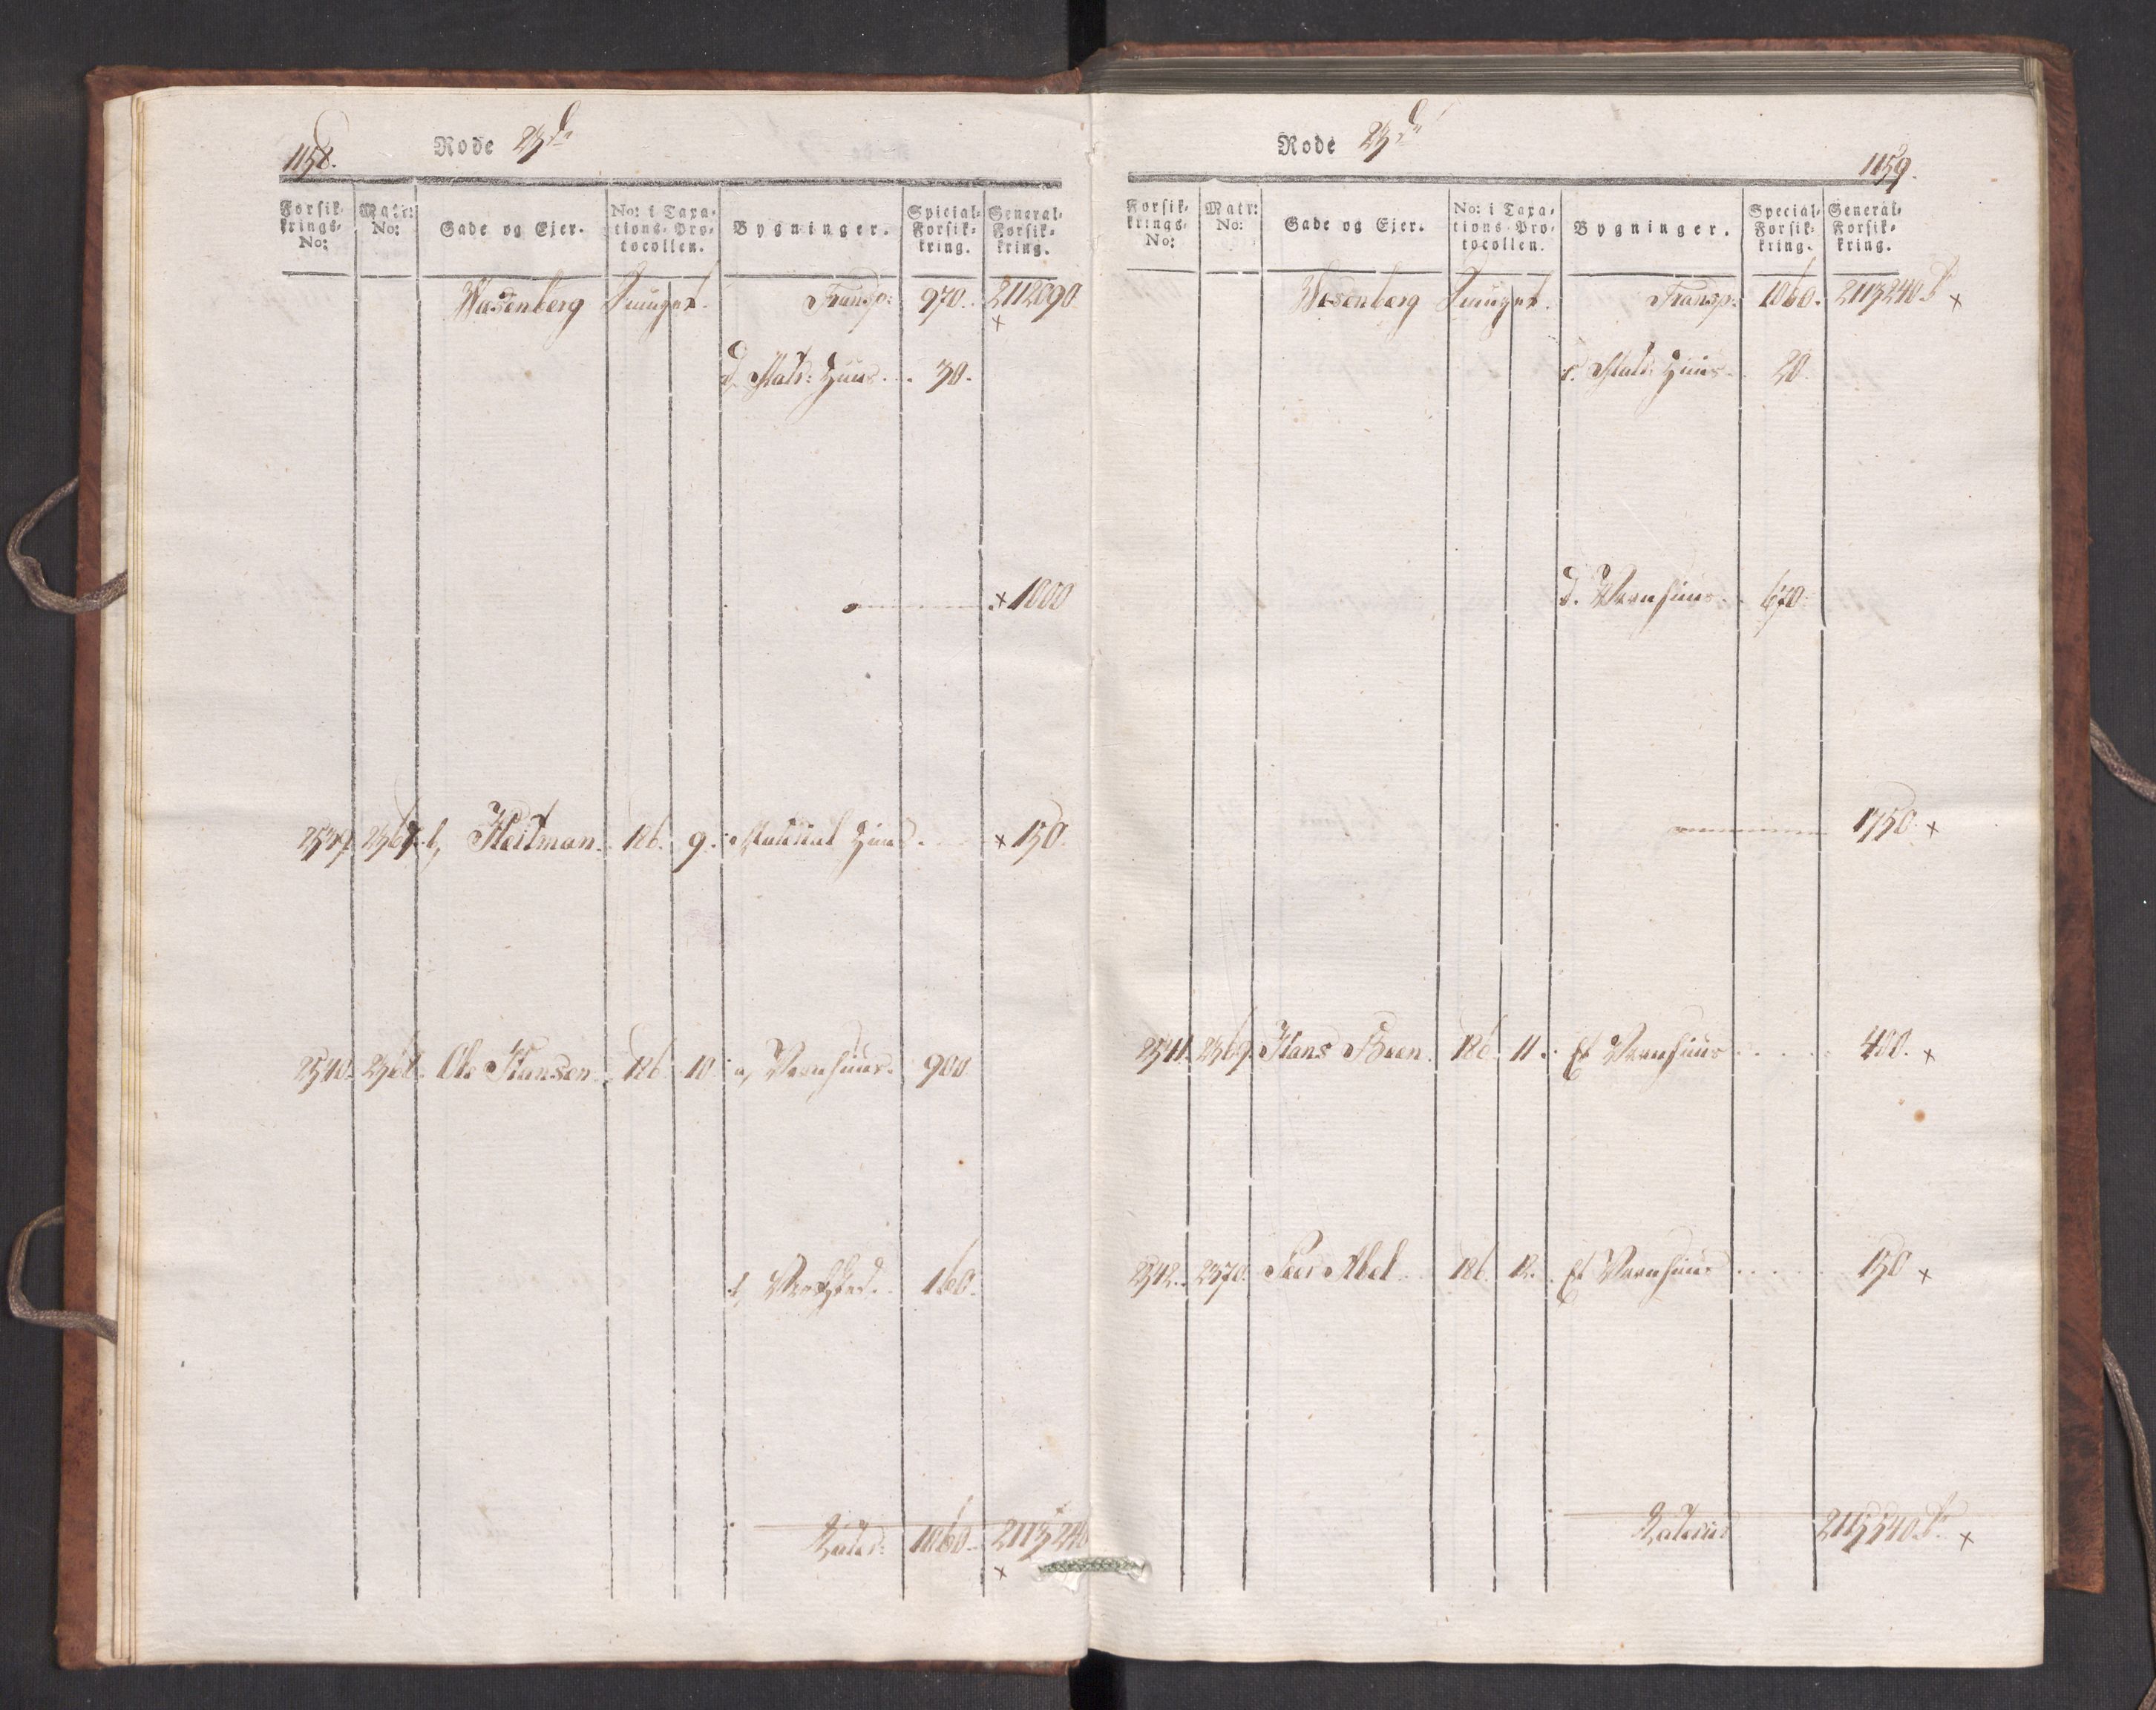 1158.
Rode 23de
Forsik-
krings-
No:
Matr:
No:
Gade og Ejer.
No: i Taxa-
tions-Pro-
tocollen.
Bygninger.
Special-
Forsik-
kring.
General-
Forsik-
kring.
Wasenberg Smuget. Transp: 970. 2112090
d. Matr: Huus. 30.
× 1000
2539. 2367. b, Heitman. 186. 9. Material Huus. × 150.
2540. 2368. Ole Hansen. 186. 10. a, Vaanhuus. 900
b, Verksted. 160.
Later: 1060. 2113240
×
Rode 23de
1159.
Forsik-
krings-
No:
Matr:
No:
Gade og Ejer.
No: i Taxa-
tions-Pro-
tocollen.
Bygninger.
Special-
Forsik-
kring.
General-
Forsik-
kring.
Wasenberg Smuget. Transp: 1060. 2113240 ×
c. Matr: Huus. 20.
d. Vaanhuus. 670.
1750. ×
2541. 2369. Hans Been. 186. 11. Et Vaanhuus 400. ×
2542. 2370. Peer Abel 186. 12. Et Vaanhuus 150 ×
Laterus 2115540 ×